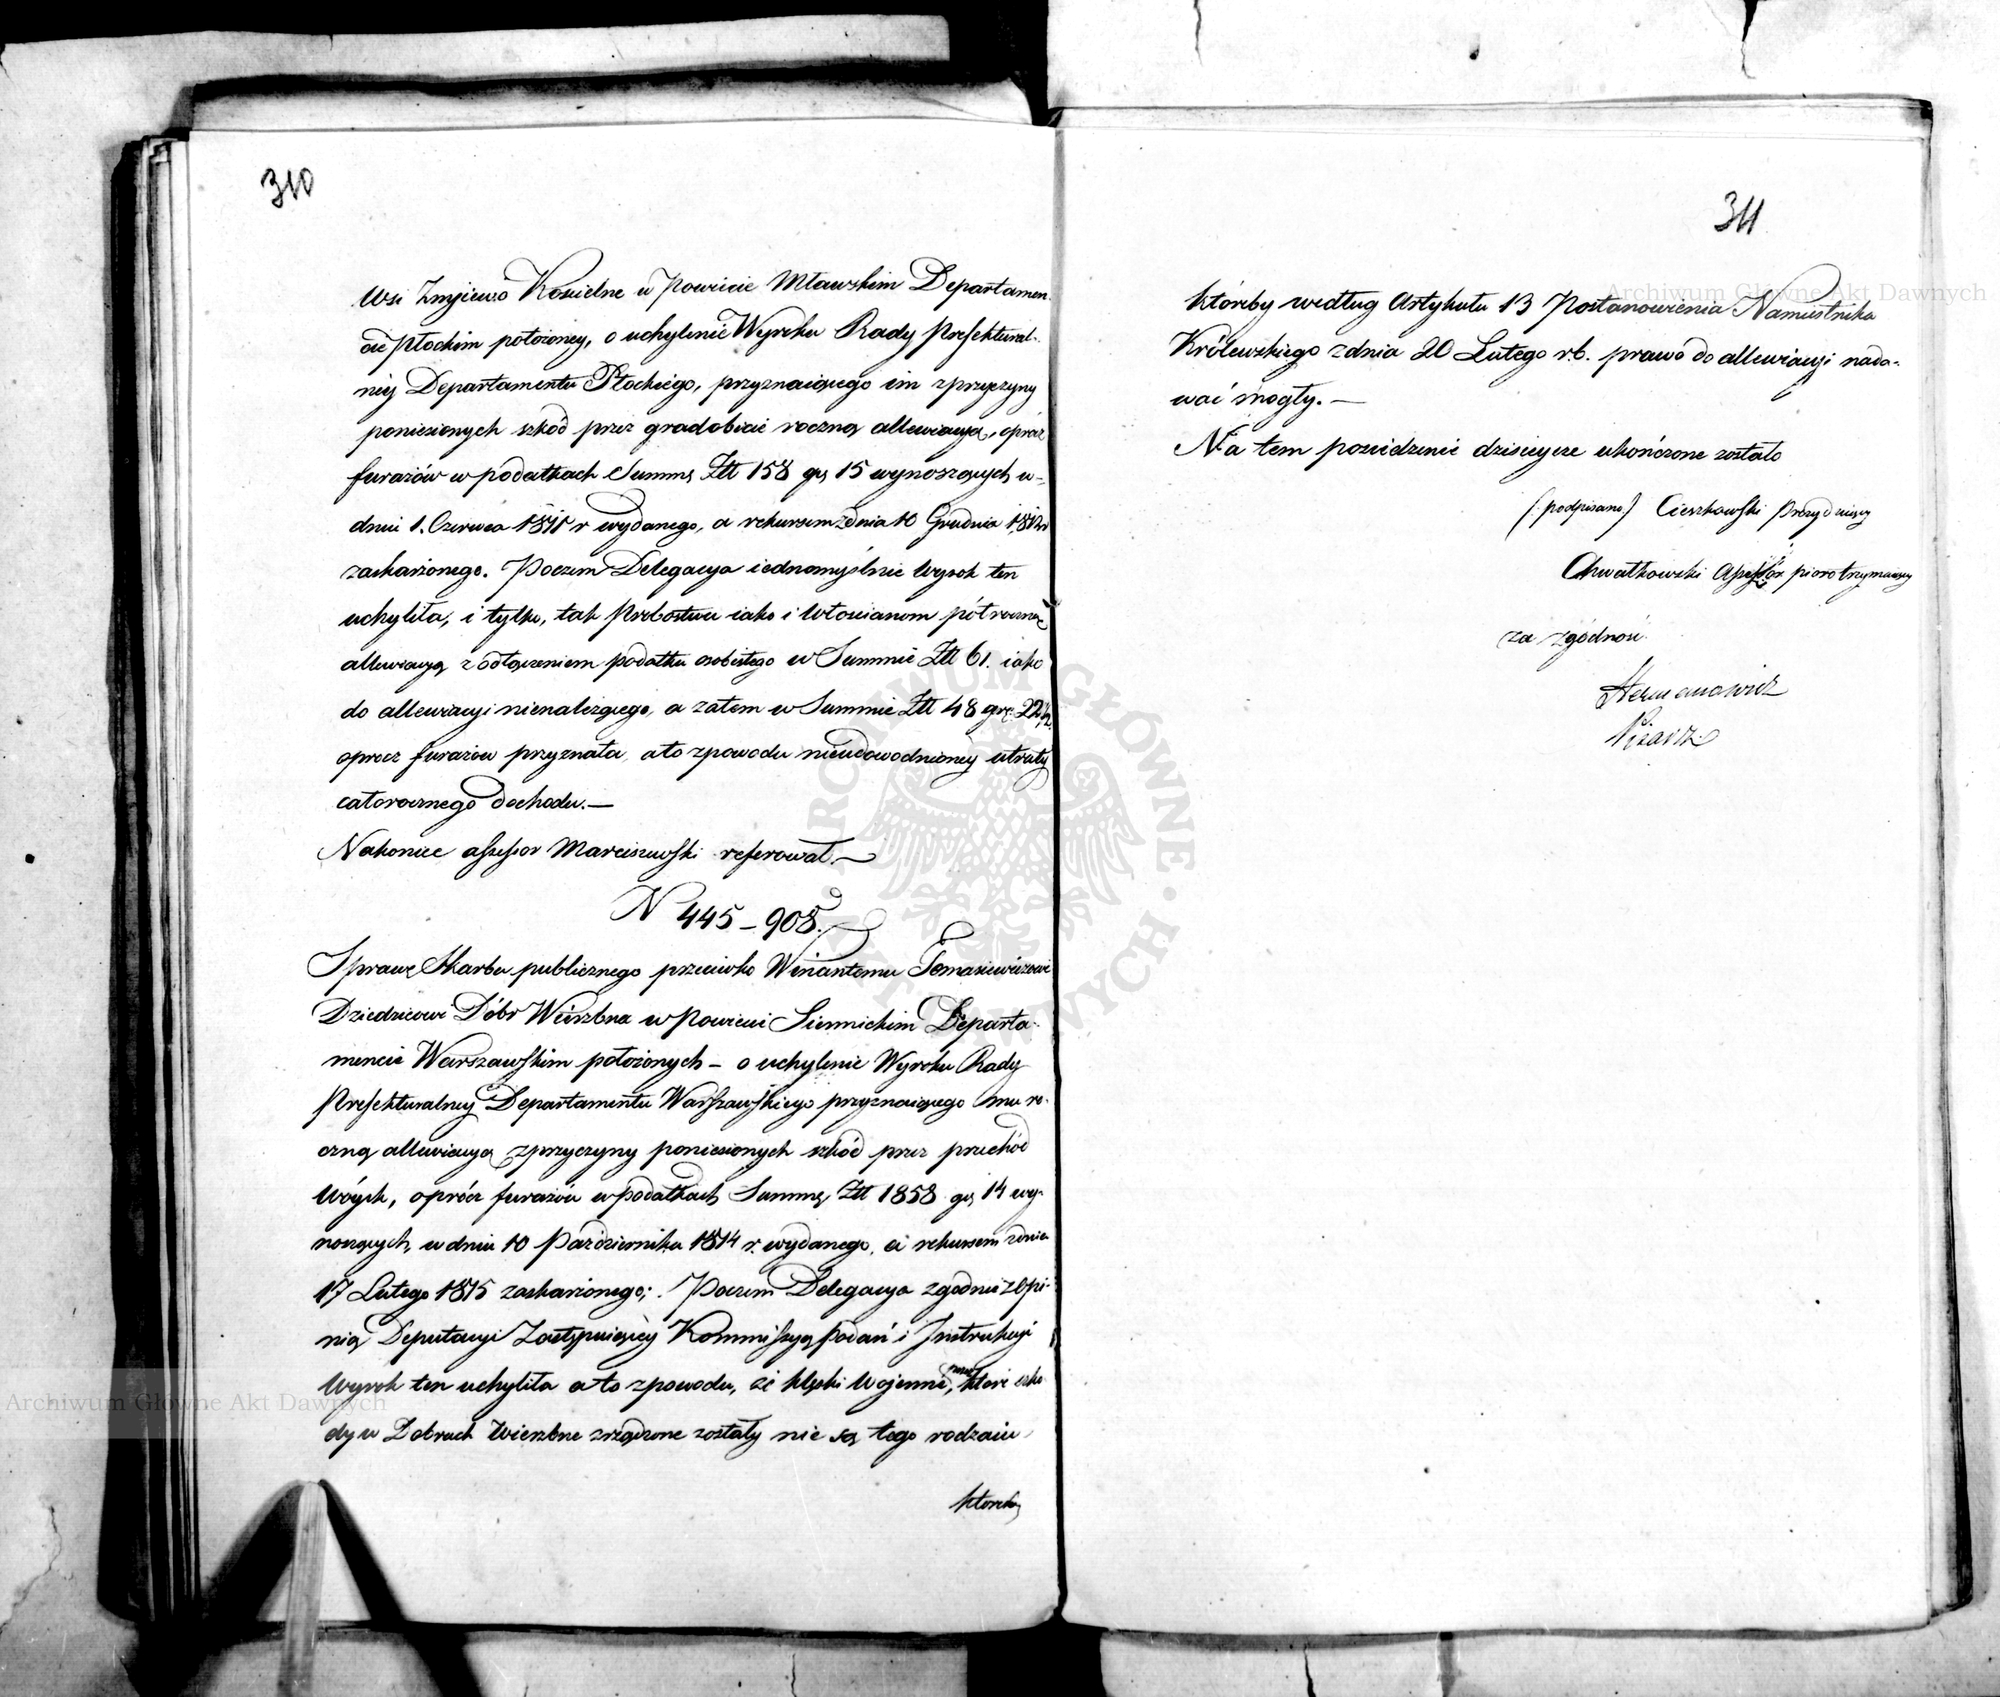 310
Wsi Żmijewo Kościelne w Powiecie Mławskim Departamen-
cie Płockim położoney, o uchylenie Wyroku Rady Prefektural-
ney Departamentu Płockiego, przyznaiącego im z przyczyny
poniesionych szkód przez gradobicie roczną allewiacyą, oprócz
furażów w podatkach Summę Złł 158 gr 15 wynoszących w
dniu 1. Czerwca 1811 r wydanego, a rekursem z dnia 10 Grudnia
zaskarżonego. Poczem Delegacya iednomyślnie Wyrok ten
uchyliła, i tylko, tak Probostwu iako i Włościanom półroczną
allewiacyą z odłączeniem podatku osobistego w Summie Złł 61. iako
do allewiacyi nienależącego, a zatem w Summie Złł 48 gr. 22 1/2
oprócz furażów przyznała, a to z powodu nieudowodnioney utraty
całorocznego dochodu.—
Nakoniec assessor Marciszewski referował.—
N 445-908.
Sprawę Skarbu publicznego przeciwko Wincentemu Tomasiewiczowi
Dziedzicowi Dóbr Wierzbna w Powiecie Siennickim Departa-
mencie Warszawskim położonych – o uchylenie Wyroku Rady
Prefekturalney Departamentu Warszawskiego przyznaiącego mu ro-
czną allewiacyą z przyczyny poniesionych szkód przez przechód
Wóysk, oprócz furażów w podatkach Summę Złł 1858 gr 14 wy-
noszących, w dniu 10 Października 1814 r. wydanego, a rekursem z dnia
17 Lutego 1815 zaskarżonego; Poczem Delegacya zgodnie z Opi-
nią Deputacyi Zastępuiącey Kommissyą podań i Instrukcyi
Wyrok ten uchyliła a to z powodu, że klęski Woienne, przez które szko
dy w Dobrach Wierzbne zrządzone zostały nie są tego rodzaiu
któreby
311
któreby według Artykułu 13 Postanowienia Namiestnika
Królewskiego z dnia 20 Lutego r.b. prawo do allewiacyi nada-
wać mogły.—
Na tem posiedzenie dzisieysze ukończone zostało
(podpisano) Cieszkowski Prezyduiący
Chwałkowski Assessor pióro trzymaiący
za zgodność
Hermanowicz
Pisarz
Archiwum Główne Akt Dawnych
Archiwum Główne Akt Dawnych